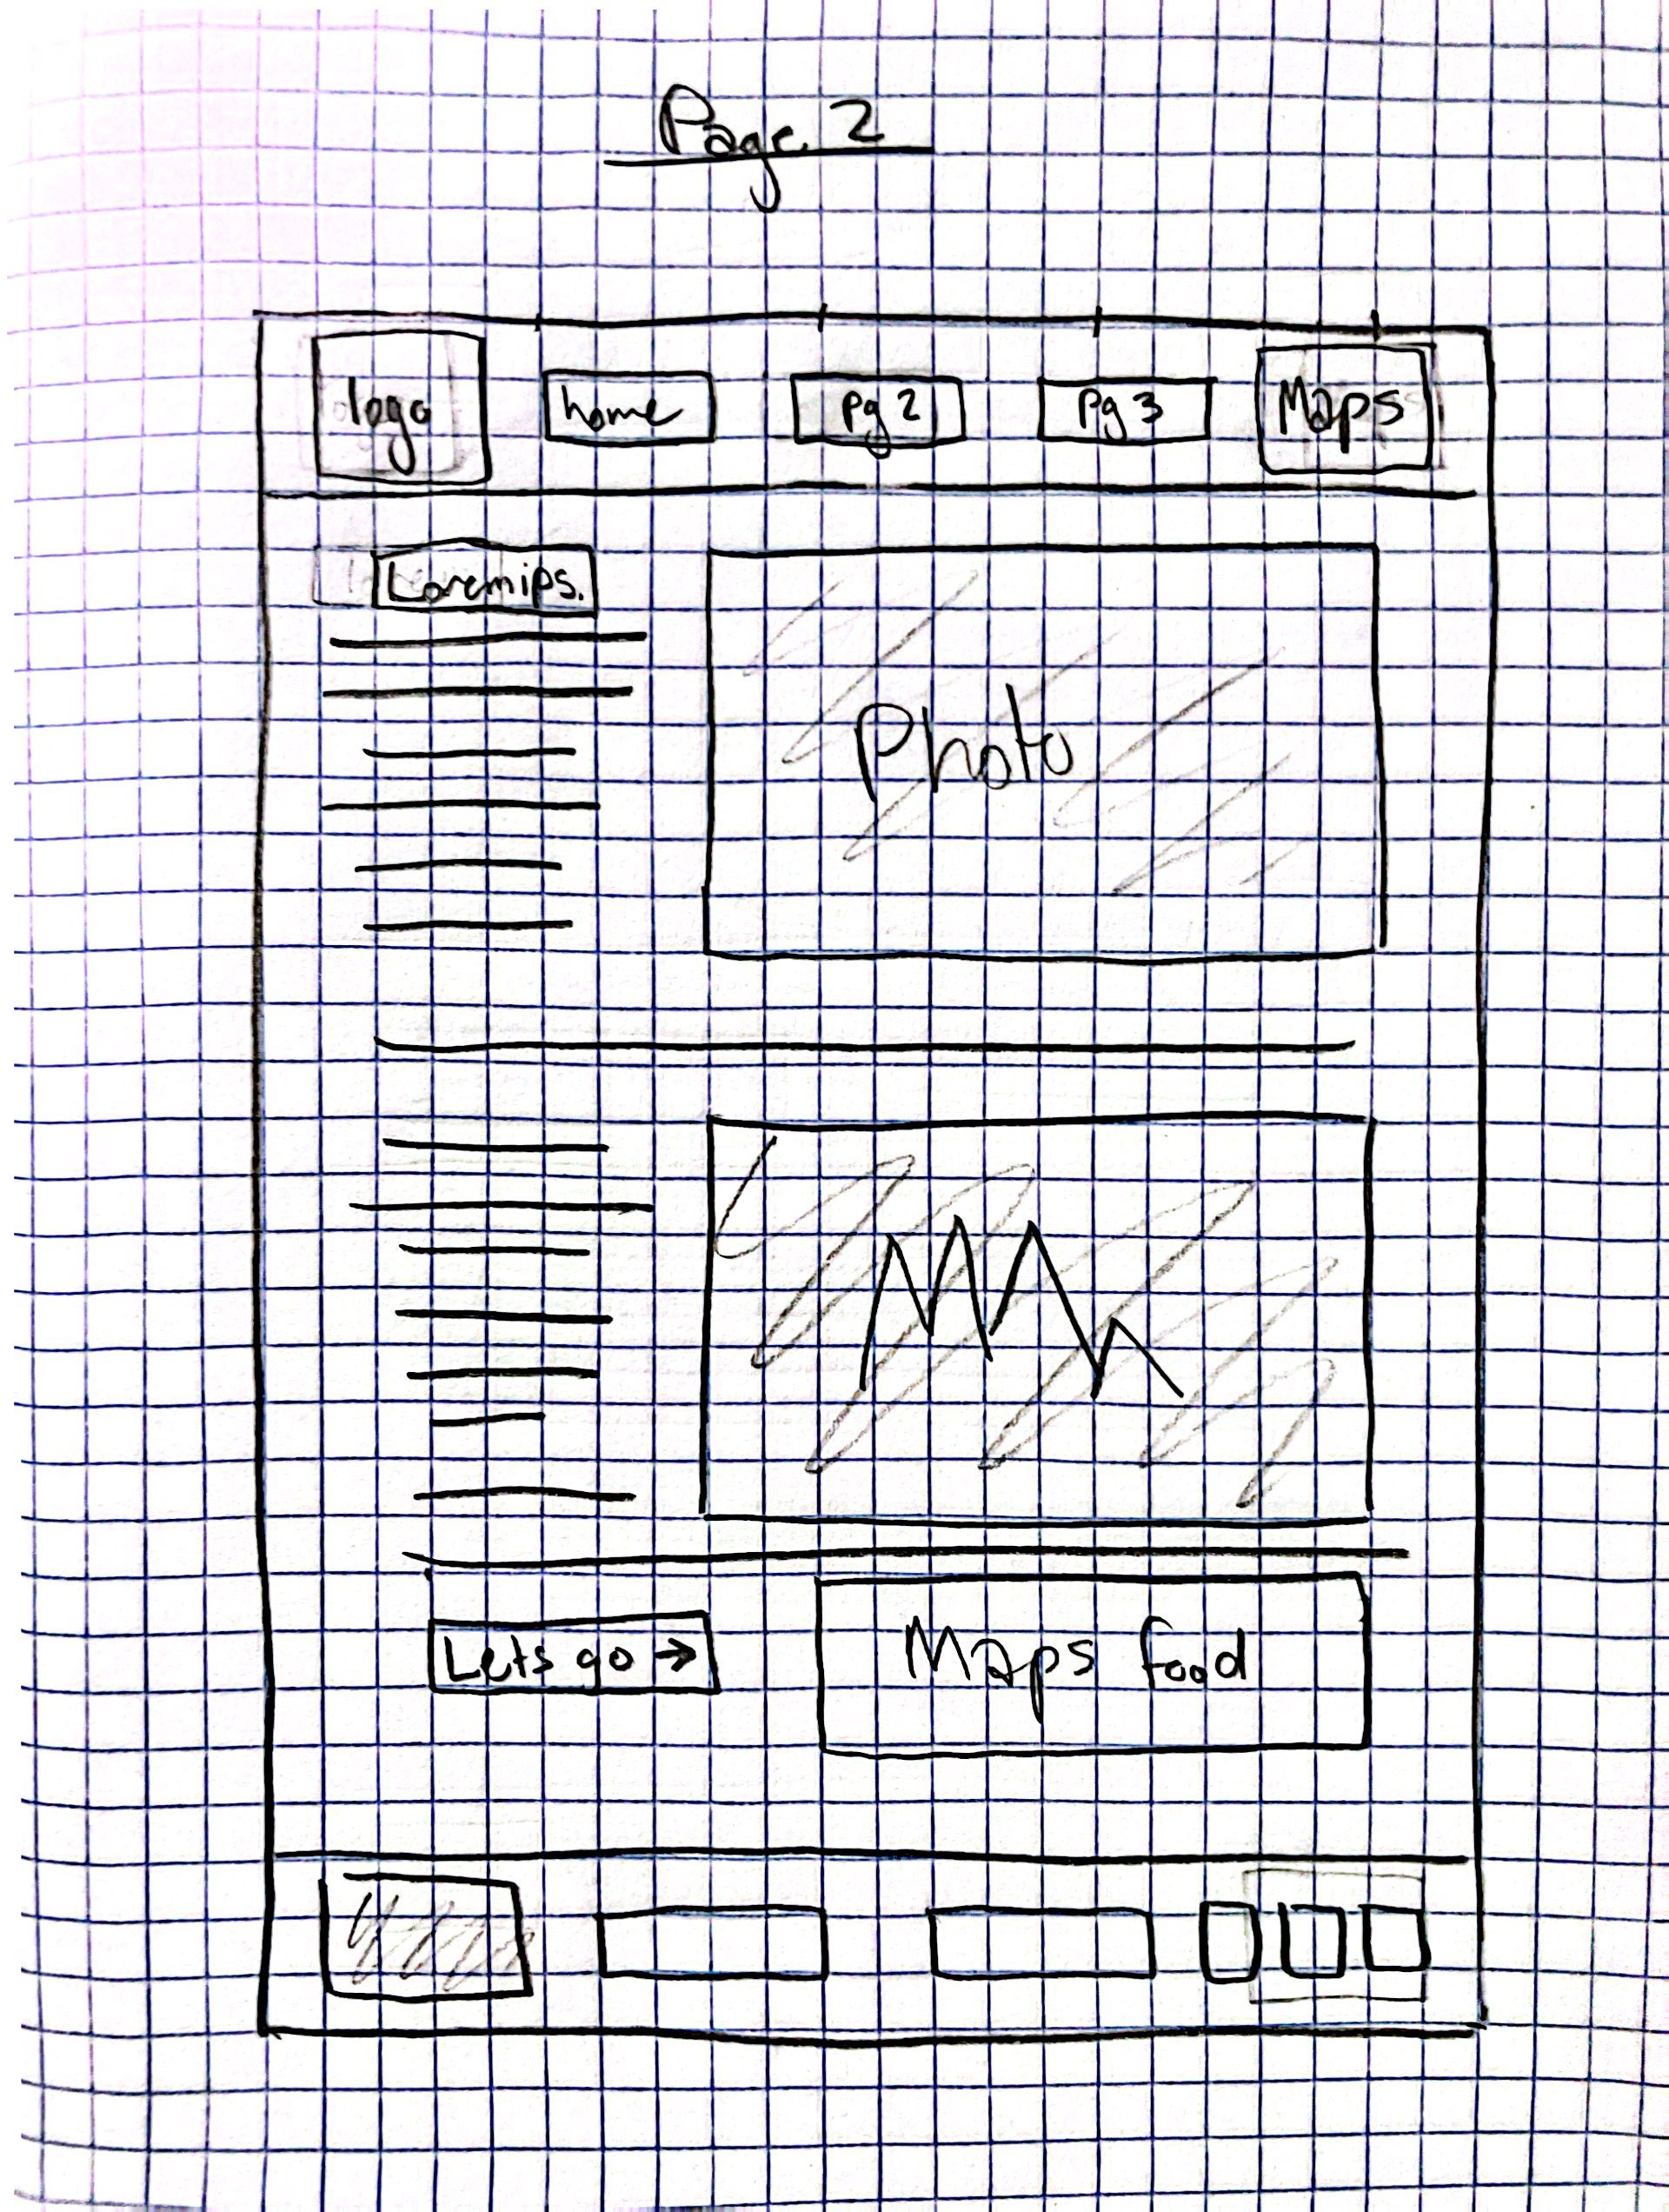 Page 2
logo home pg 2 pg 3 Maps
Loremips.
Photo
Lets go → Maps food